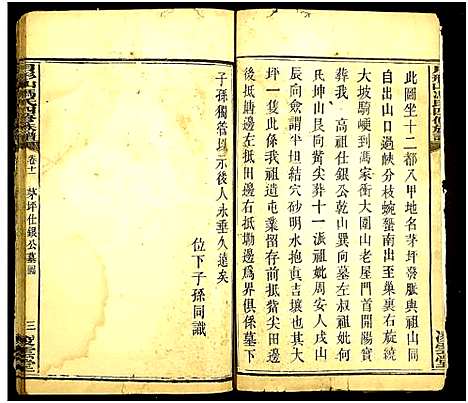 此圖坐十二都八甲地名茅坪發脈與祖山同
出自出口過峽分枝蜿蜒南出至巢裏右旋繞
大坡騎峴到馮家衝大圍山老屋門首開陽寶
葬我 高祖仕銀公乾山巽向墓左叔祖妣何
氏坤山艮向觜尖葬十一派祖妣周安人戌山
辰向嘗念來龍結穴砂明水秀必卜吉焉其
吉也實此係我祖遺屯業留存前抵觜尖田
後抵塘邊左抵田邊右抵勘邊為界俱係墓下
子孫獨管以示後人永垂久遠矣
位下子孫同識
馮氏四修族譜
卷十一 茅坪仕銀公墓圖
三